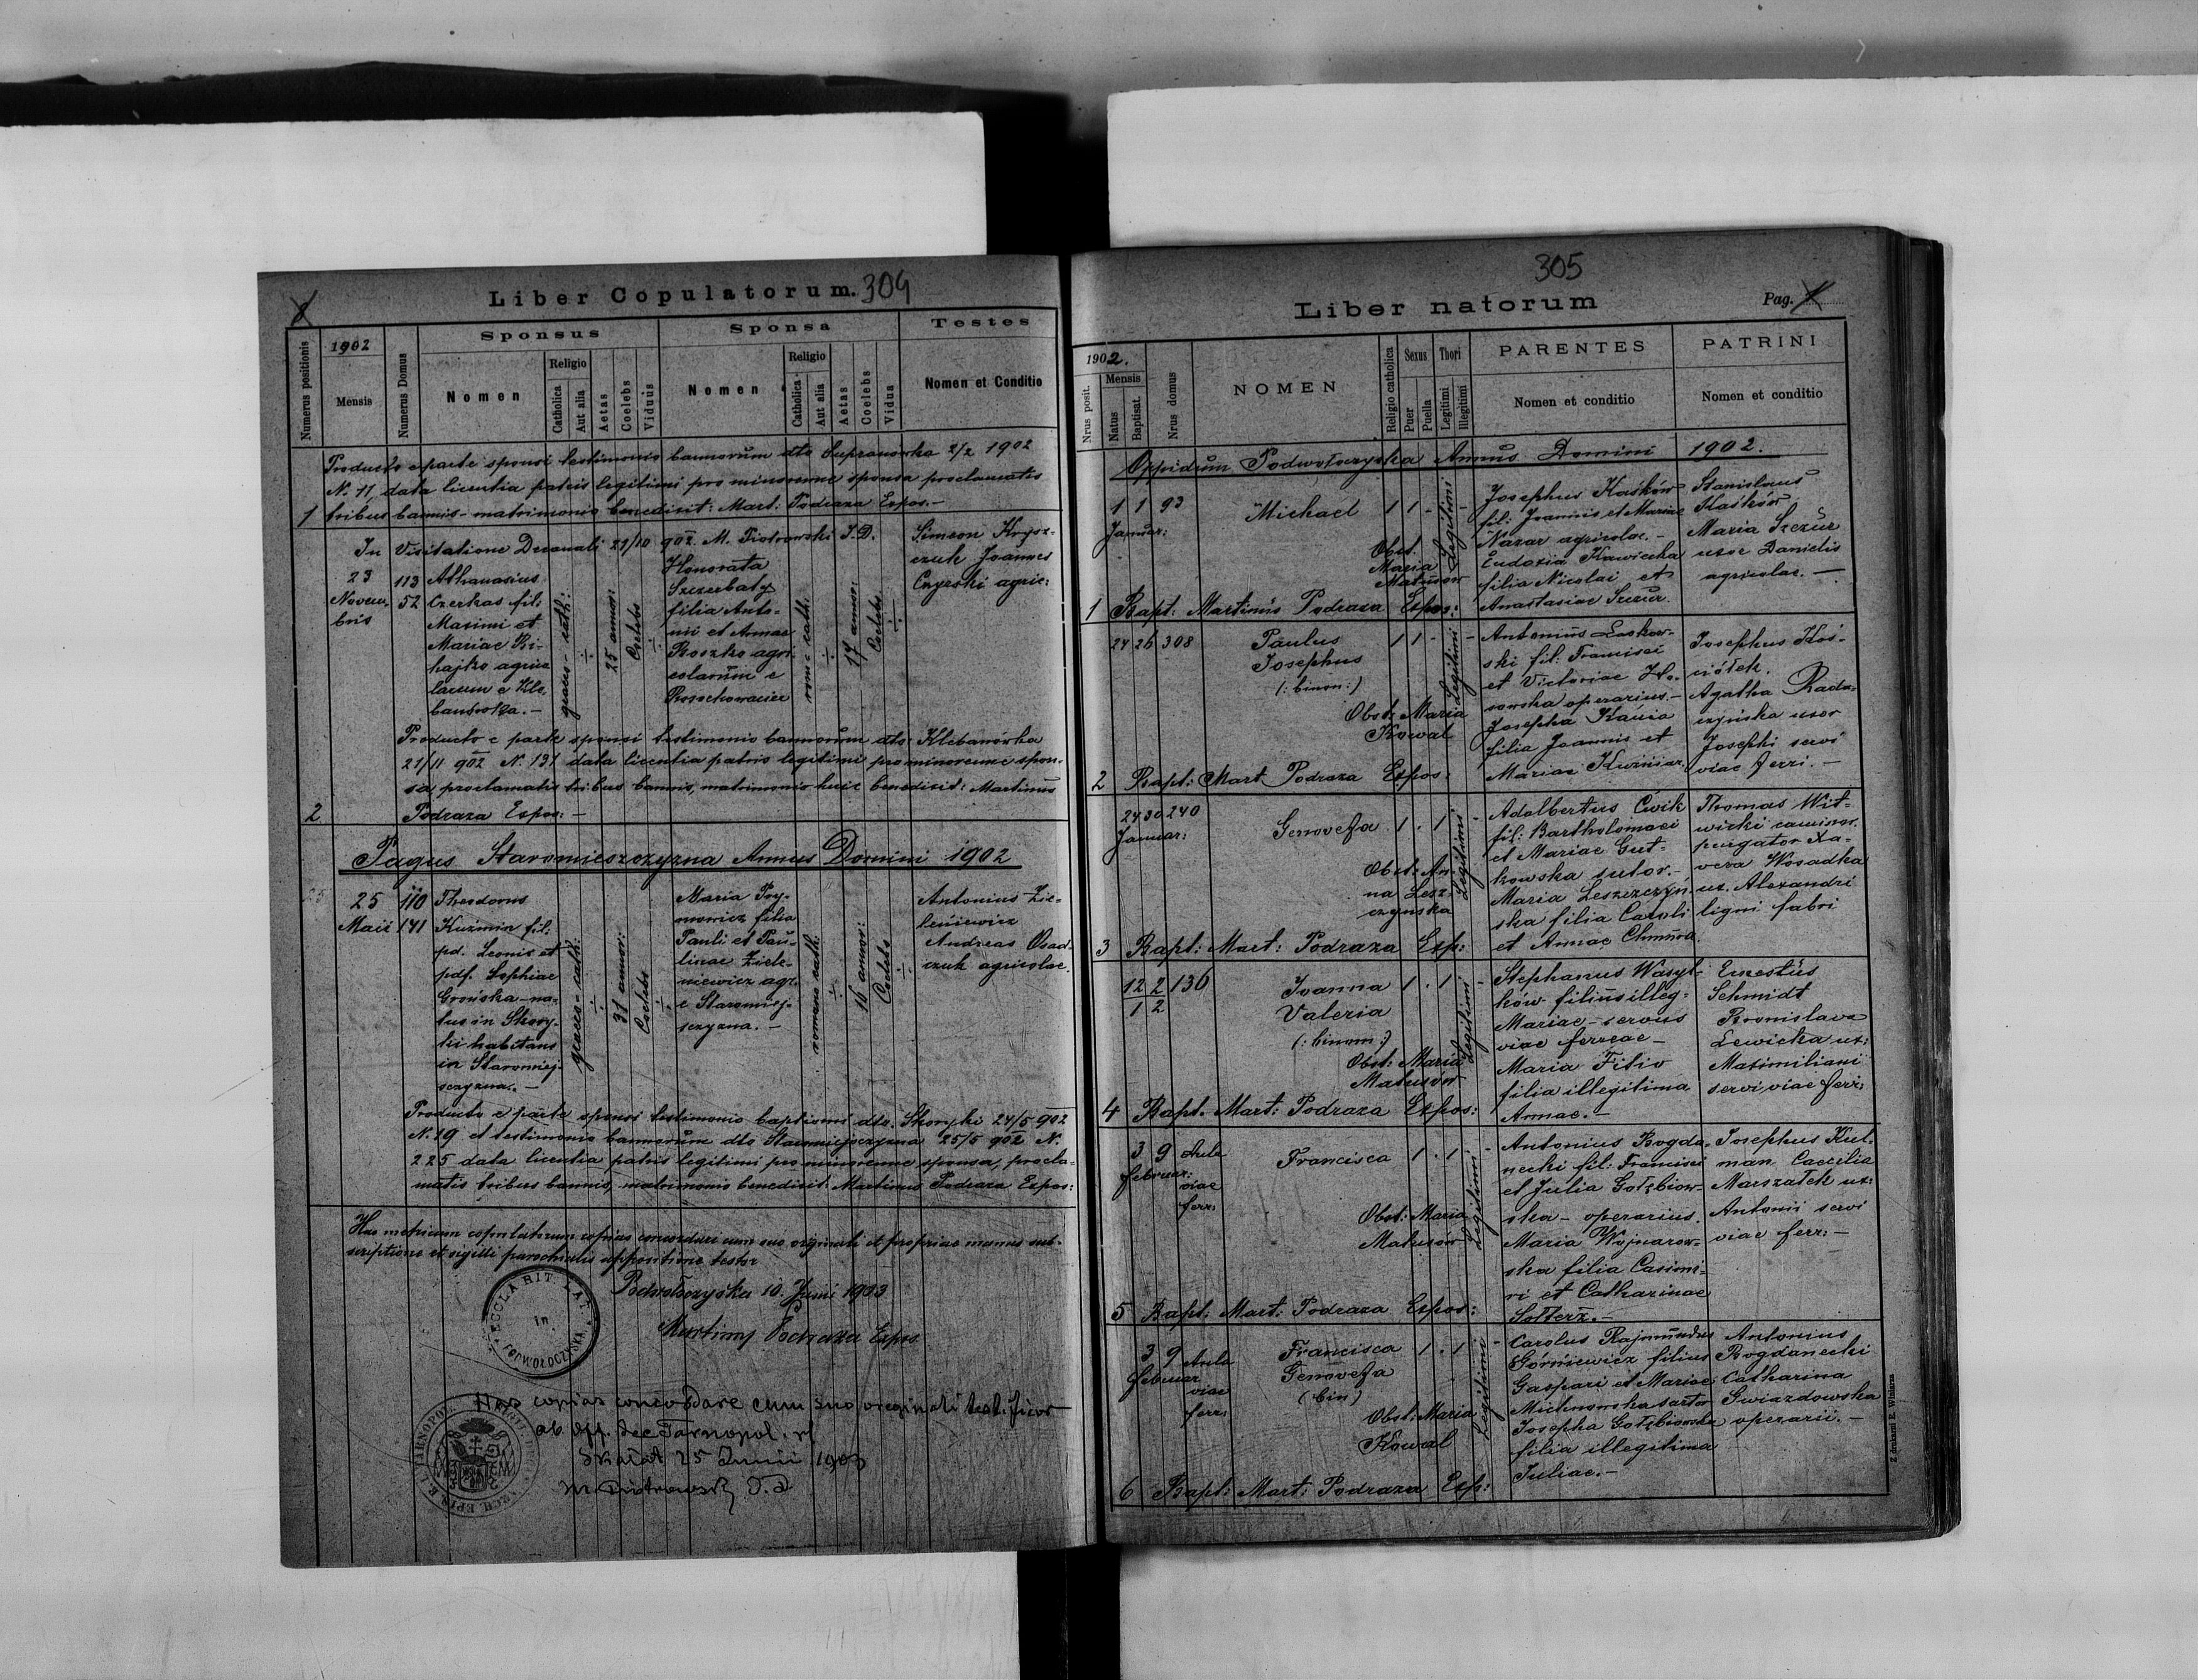 8
Liber Copulatorum. 304
Numerus positionis
1902
Mensis
Numerus Domus
Sponsus
Nomen
Religio
Catholica
Aut alia
Aetas
Coelebs
Viduus
Sponsa
Nomen
Religio
Catholica
Aut alia
Aetas
Coelebs
Vidua
Testes
Nomen et Conditio
Producto e parte sponsi testimonio bannorum dto Supranówka 2/2 1902
N. 11, data licentia patris legitimi pro minorenne sponsa proclamatis
1 tribus bannis - matrimonio benedixit: Mart: Podraza Expos. -
In Visitatione Decanali 21/10 902. M. Piotrowski V.D.
23
Novem-
bris
113
52
Athanasius
Czerkas fil:
Maximi et
Mariae Ki-
hajko agrico
larum e Kle
banówka. -
graeco - cath:
÷
25 annor:
Coelebs
÷
Honorata
Szczerbaty
filia Anto-
nii et Annae
Koszko agri
colarum e
Rosochowaciec
romc cath:
÷
17 annor:
Coelebs
÷
Simeon Krysz-
czuk Joannes
Czyżski agric:
Producto e parte sponsi testimonio bannorum dto: Klebanówka
21/11 902 N. 131 data licentia patris legitimi pro minorenne spon-
sa, proclamatis tribus bannis, matrimonio huic benedixit: Martinus
2 Podraza Expos: -
Pagus Staromieszczyzna Annus Domini 1902
25
Maii
110
141
Theodorus
Kuzmin fil:
pd. Leonis et
pdf. Sophiae
Grońska - na-
tus in Skory-
ki habitans
in Staromiej-
sczyzna. -
graeco - cath:
÷
31 annor:
Coelebs
÷
Maria Pry-
mowicz filia
Pauli et Pau-
linae Ziele-
niewicz agr.
e Staromiej-
sczyzna. -
romano cath:
÷
16 annor:
Coelebs
÷
Antonius Zie-
leniewicz
Andreas Osad-
czuk agricolae.
Producto e parte sponsi testimonio baptismi dto. Skoryki 24/5 902
N. 19 et testimonio bannorum dto Staromiejsczyzna 25/5 902 N.
225 data licentia patris legitimi pro minorenne sponsa, procla-
matis tribus bannis, matrimonio benedixit: Martinus Podraza Expos:
Has metricum copulatorum copias concordare cum suo originali et propriae manus sub-
scriptione et sigilli parochialis appositione testor
Podwołoczyska 10. Juni 1903
Martinus Podraza Expos
ECCLA RIT. LAT. in PODWOŁOCZYSKA
Has copias concordare cum suo originali testificor
ab Off. Dec Tarnopol. rl
Skałat 25 Junii 1903
M. Piotrowski V. D
305
Liber natorum
Pag. 1
1902.
Nrus posit.
Mensis
Natus
Baptisat.
Nrus domus
NOMEN
Religio catholica
Sexus
Puer
Puella
Thori
Legitimi
Illegitimi
PARENTES
Nomen et conditio
PATRINI
Nomen et conditio
Oppidum Podwołoczyska Annus Domini 1902.
1 1 93
Januar:
Michael
1 1 - -
Legitimi
Obst.
Maria
Matusów
Josephus Kaśków
fil: Joannis et Mariae
Nazar agricolae. -
Eudoxia Kawiecka
filia Nicolai et
Anastasiae Szczur.
Stanislaus
Kaśków
Maria Szczur
uxor Danielis
agricolae. -
1 Bapt: Martinus Podraza Expos:
24 26 308
Paulus
Josephus
(: binom :)
1 1 - -
Legitimi
Obst: Maria
Kowal
Antonius Laskow-
ski fil: Francisci
et Victoriae
sowska operarius. -
Josepha Kania
filia Joannis et
Mariae Kuzniar.
Josephus Koś-
ciółek.
Agatha Rada-
czyńska uxor
Josephi servi
viae ferri. -
2 Bapt: Mart Podraza Expos:
24 30 240
Januar:
Genovefa
1 . 1 -
Legitimi
Obst: An-
na Lesz-
czynska
Adalbertus Ćwik
fil: Bartholomaei
et Mariae Gut-
kowska sutor. -
Maria Leszczyń-
ska filia Caroli
et Annae Chmura.
Thomas Wit-
wicki caminor.
purgator Xa-
vera Wosadka
ux. Alexandri
ligni fabri
3 Bapt: Mart: Podraza Exp:
12 2 136
1 2
Joanna
Valeria
(: binom :)
1 . 1 -
Legitimi
Obst: Maria
Matusów
Stephanus Wasyl-
ków filius illeg:
Mariae - servus
viae ferreae -
Maria Fitio
filia illegitima
Annae. -
Ernestus
Schmidt
Bronislava
Lewicka ux:
Maximiliani
servi viae ferr:
4 Bapt. Mart: Podraza Expos:
3 9 Aula
februar: viae
ferr:
Francisca
1 . 1 -
Legitimi
Obst: Maria
Matusów
Antonius Bogda-
necki fil: Francisci
et Julia Gołębiow-
ska - operarius.
Maria Wojnarow-
ska filia Casimi-
ri et Catharinae
Sołterz. -
Josephus Kul-
man Caecilia
Marszałek ux:
Antonii servi
viae ferr: -
5 Bapt. Mart: Podraza Expos:
3 9 Aula
februar viae
ferr:
Francisca
Genovefa
(bin)
1 . 1 -
Legitimi
Obst: Maria
Kowal
Carolus Rajmundus
Górniewicz filius
Gaspari et Mariae
Michnowska sartor
Josepha Gołębiowska
filia illegitima
Juliae. -
Antonius
Bogdanecki
Catharina
Gwiazdowska
operarii. -
6 Bapt: Mart: Podraza Exp:
Z drukarni E. Winiarza